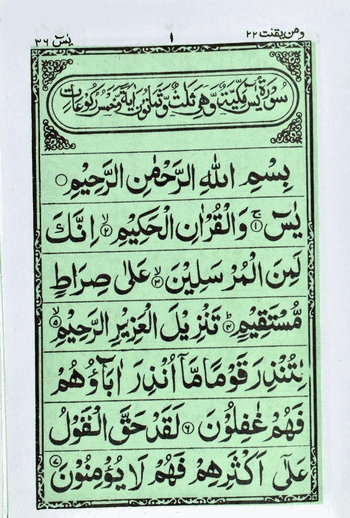 یٰسٓ ۳۶ ۱ ومن یقنت ۲۲
سُوْرَةُ یٰسٓ مَکِّیَّةٌ وَّهِیَ ثَلٰثٌ وَّثَمَانُوْنَ اٰیَةً وَّخَمْسُ رُکُوْعَاتٍ
بِسْمِ اللّٰهِ الرَّحْمٰنِ الرَّحِیْمِ ○
یٰسٓ ۚ‏﴿۱﴾ وَالْقُرْاٰنِ الْحَکِیْمِ ۙ‏﴿۲﴾ اِنَّكَ
لَمِنَ الْمُرْسَلِیْنَ ۙ‏﴿۳﴾ عَلٰى صِرَاطٍ
مُّسْتَقِیْمٍ ؕ‏﴿۴﴾ تَنْزِیْلَ الْعَزِیْزِ الرَّحِیْمِ ۙ‏﴿۵﴾
لِتُنْذِرَ قَوْمًا مَّاۤ اُنْذِرَ اٰبَآؤُهُمْ
فَهُمْ غٰفِلُوْنَ ﴿۶﴾ لَقَدْ حَقَّ الْقَوْلُ
عَلٰۤى اَکْثَرِهِمْ فَهُمْ لَا یُؤْمِنُوْنَ ﴿۷﴾